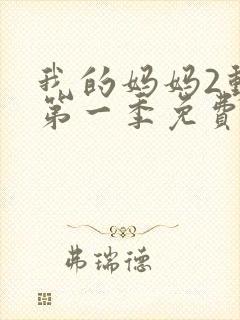 我的妈妈2
第一季免費
弗瑞德